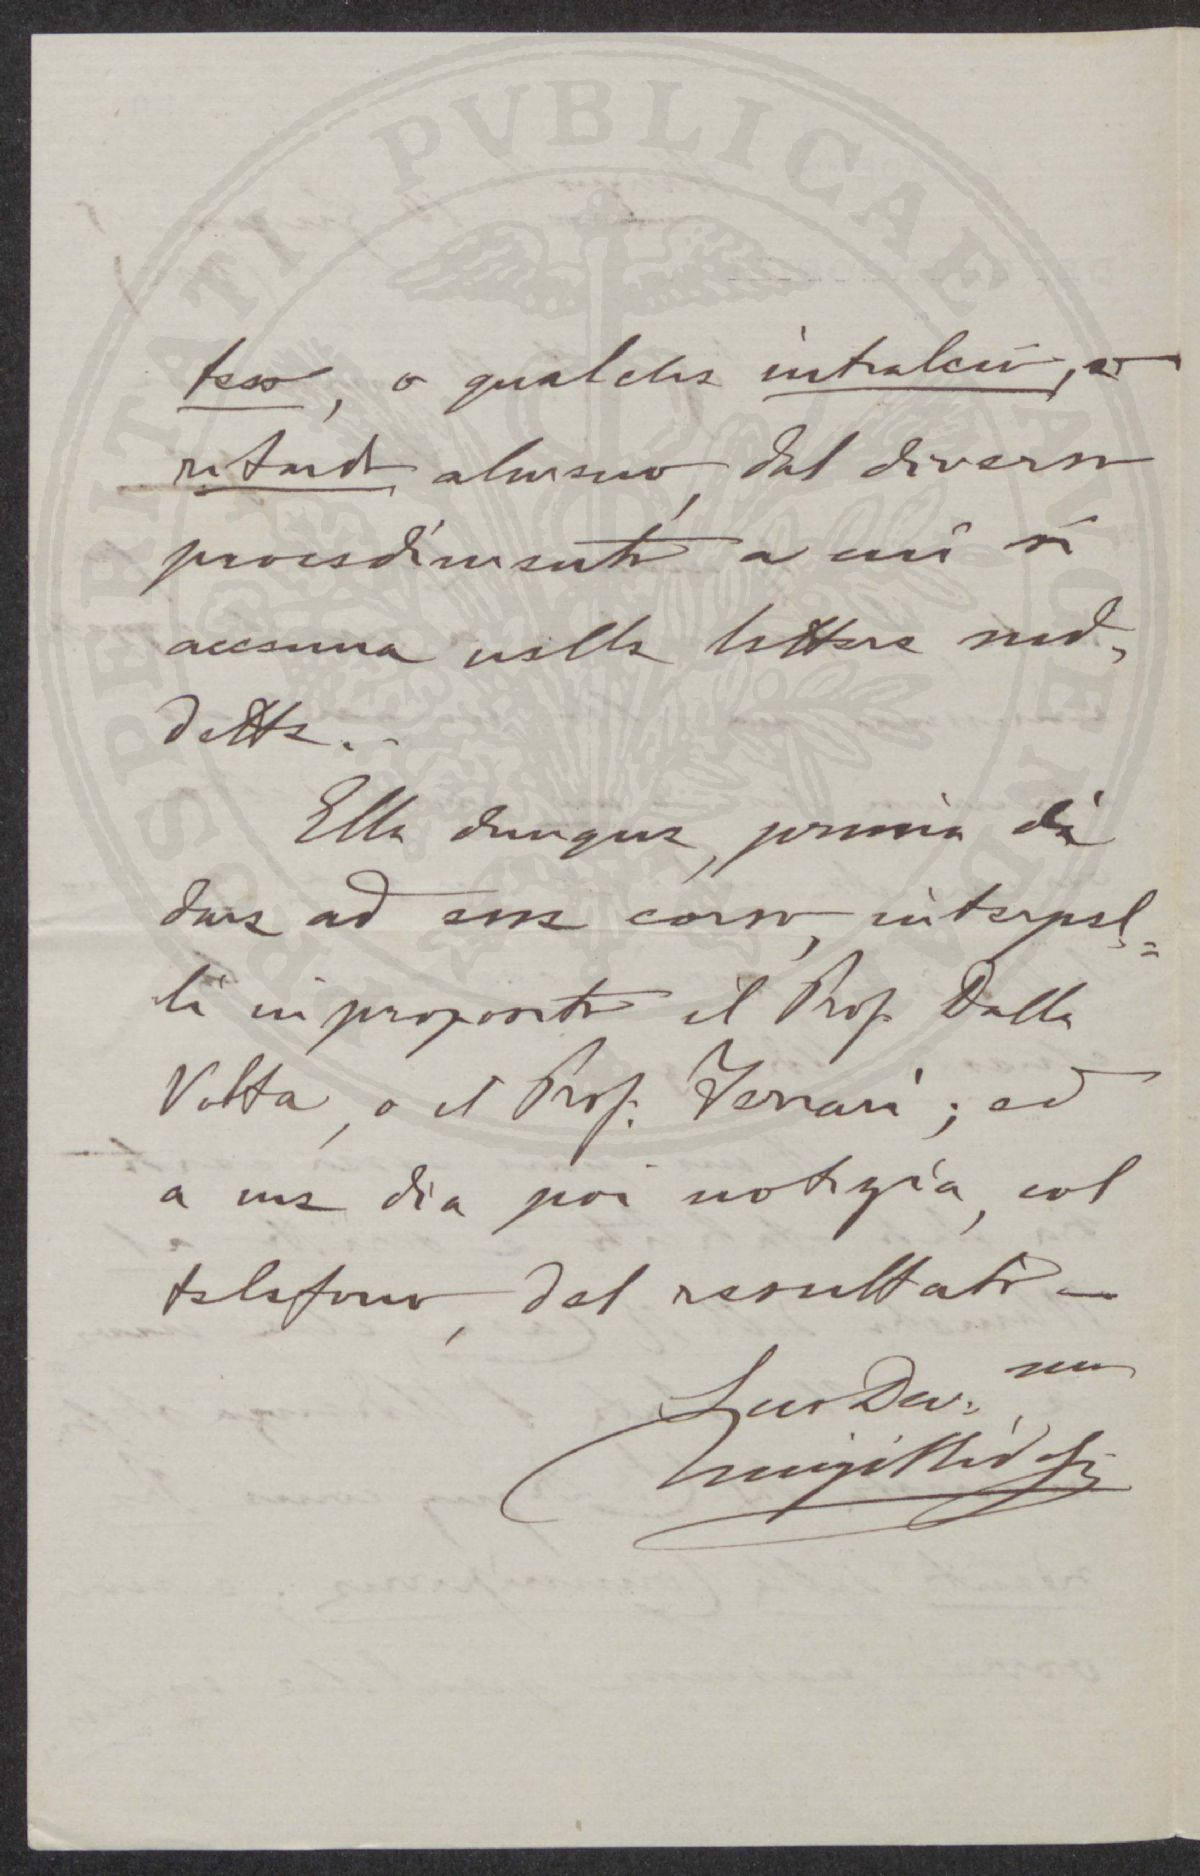 PROSPERITATI PVBLICAE AVGENDAE
tesso, o qualche intralcio, o
ritardo almeno, dal diverso
procedimento a cui si
accenna nelle lettere sud-
dette.
Ella dunque, prima di
dare ad esse corso, interpel=
li in proposito il Prof. Dalla
Volta, o il Prof. Ferrari; ed
a me dia poi notizia, col
telefono, del resultato —
Suo Dev.mo
Luigi